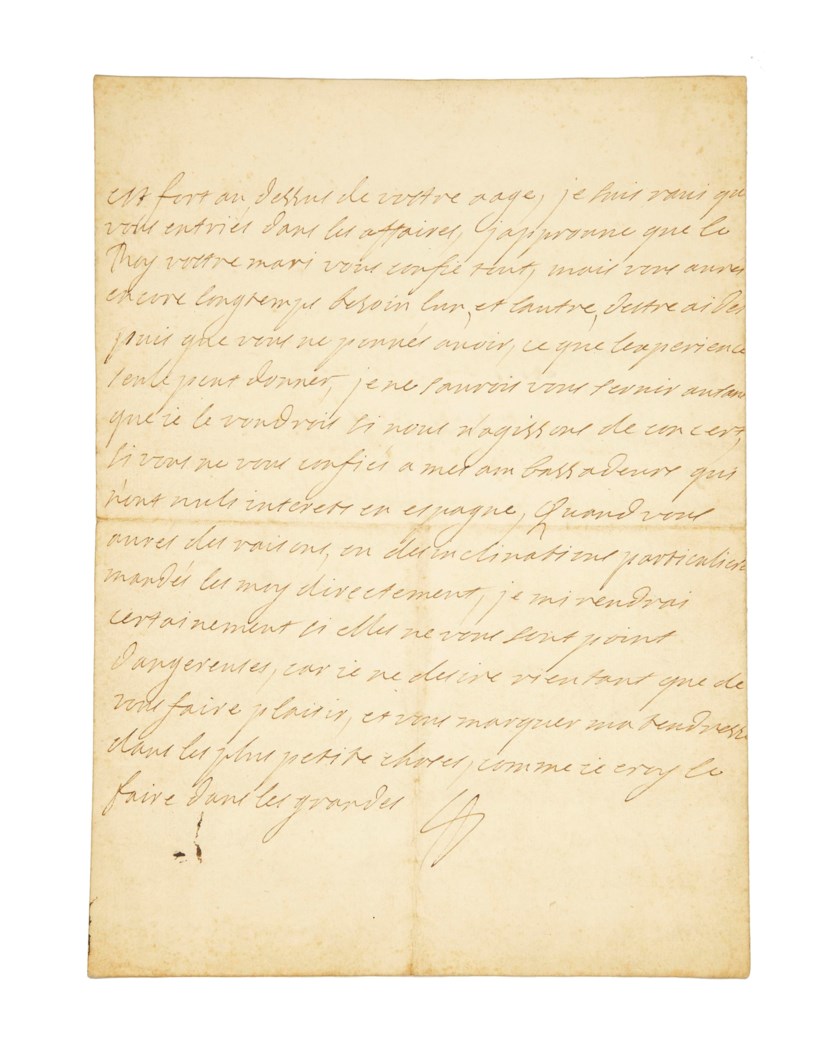 est fort au dessus de vostre aage, je suis ravis que
vous entriés dans les affaires, j'aprouve que le
Roy vostre mari vous confie tout, mais vous aurés
encore longtemps besoin l'un, et l'autre, d'estre aidés
puis que vous ne pouvés avoir, ce que l'experience
seule peut donner, je ne saurois vous servir autant
que ie le voudrois si nous n'agissons de concert,
si vous ne vous confiés a mes ambassadeurs qui
n'ont nuls interets en espagne, Quand vous
aurés des raisons, ou des inclinations particulieres
mandés les moy directement, je mi rendrai
certainement si elles ne vous sont point
dangereuses, car ie ne desire rien tant que de
vous faire plaisir, et vous marquer ma tendresse
dans les plus petite choses, comme ie croy le
faire dans les grandes